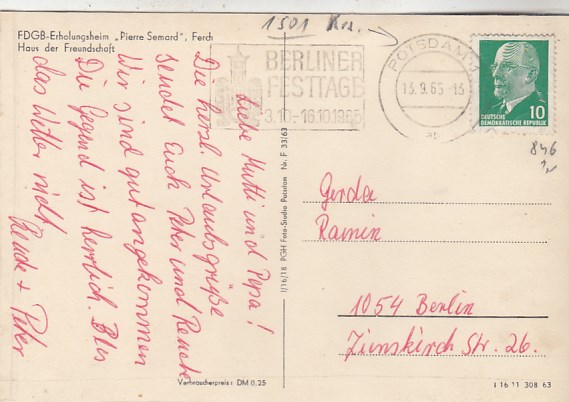 1501 
FDGB-Erholungsheim „Pierre Semard", Ferch
Haus der Freundschaft
BERLINER
FESTTAGE
3.10.-16.10.1965
POTSDAM
13.9.65-13
10
DEUTSCHE
DEMOKRATISCHE REPUBLIK
846
Liebe Mutti und Papa!
Die herzl. Urlaubsgrüße
sendet Euch Peter und
Wir sind gut angekommen
Die Gegend ist herrlich. Blos
das Wetter nicht
+ Peter
I/16/18 PGH Foto-Studio Potsdam Nr. F 33/63
Gerda
Ramin
1054 Berlin
Zionskirch Str. 26.
Verbraucherpreis: DM 0,25
I 16 11 308 63